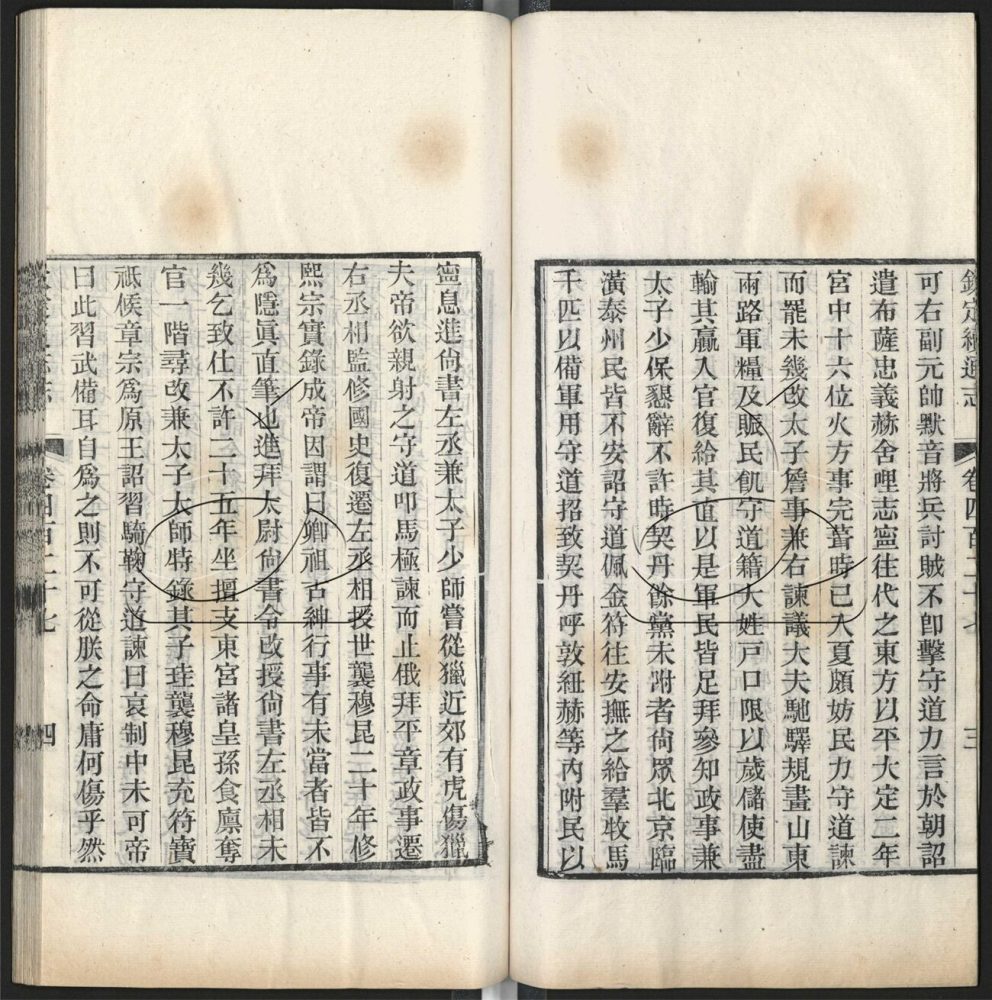 欽定續通志 卷四百二十七 三
可右副元帥默音將兵討賊不卽擊守道力言於朝詔
遣布薩忠義赫舍哩志寧往代之東方以平大定二年
宮中十六位火方事完葺時已入夏頗妨民力守道諫
而罷未幾改太子詹事兼右諫議大夫馳驛規畫山東
兩路軍糧及賑民飢守道籍大姓戸口限以歲儲使盡
輸其贏入官復給其直以是軍民皆足拜參知政事兼
太子少保懇辭不許時契丹餘黨未附者尙眾北京臨
潢泰州民皆不安詔守道佩金符往安撫之給羣牧馬
千匹以備軍用守道招致契丹呼敦紐赫等內附民以
寧息進尙書左丞兼太子少師嘗從獵近郊有虎傷獵
夫帝欲親射之守道叩馬極諫而止俄拜平章政事遷
右丞相監修國史復遷左丞相授世襲穆昆二十年修
熙宗實錄成帝因謂曰卿祖古紳行事有未當者皆不
爲隱眞直筆也進拜太尉尙書令改授尙書左丞相未
幾乞致仕不許二十五年坐擅支東宮諸皇孫食廩奪
官一階尋改兼太子太師特錄其子珪襲穆昆充符寶
祗候章宗爲原王詔習騎鞠守道諫曰哀制中未可帝
曰此習武備耳自爲之則不可從朕之命庸何傷乎然
卷四百二十七 四